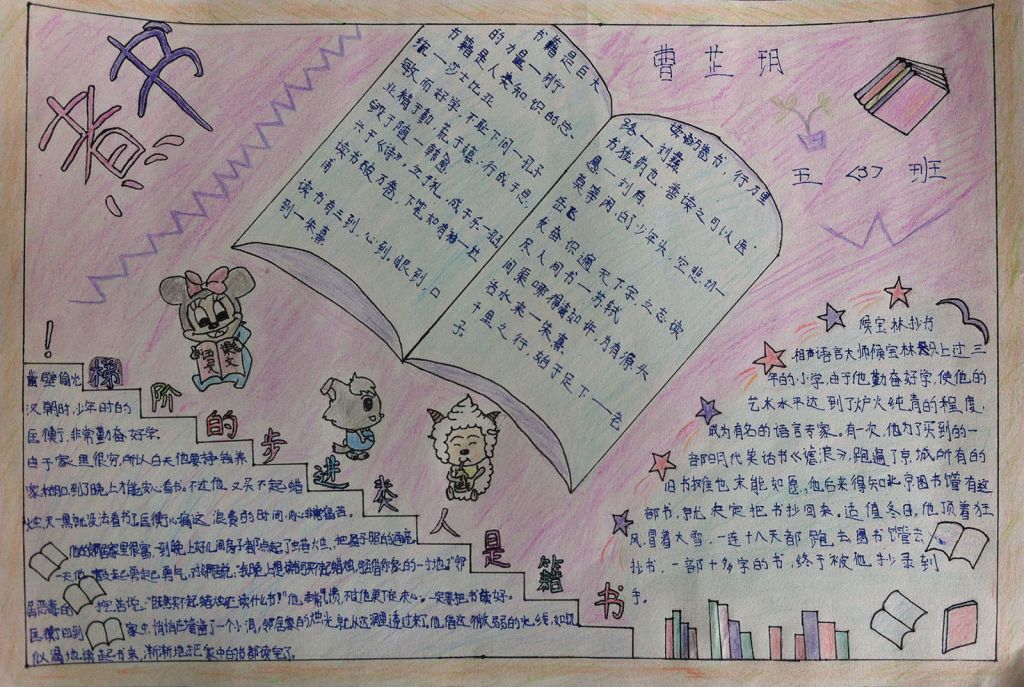 着书
曹芷玥
五<3>班
书籍是巨大
的力量—列宁
书籍是人类知识的总
统—莎士比亚
敏而好学,不耻下问—孔子
业精于勤,荒于嬉;行成于思,
毁于随—韩愈
兴于《诗》,立于礼,成于乐—孔子
读书破万卷,下笔如有神—杜
甫
读书有三到,心到,眼到,口
到—朱熹
读万卷书,行万里
路—刘彝
书犹药也,善读之可以医
愚—刘向
莫等闲,白了少年头,空悲切—
岳飞
发奋识遍天下字,立志读
尽人间书—苏轼
问渠哪得清如许,为有源头
活水来—朱熹
千里之行,始于足下——老
子。
语文
课文
!
梯
阶
的
步
进
类
人
是
籍
书
凿壁偷光
汉朝时,少年时的
匡衡,非常勤奋好学。
由于家里很穷,所以白天他要挣钱养
家糊口,到了晚上才能安心看书。不过他又买不起蜡
烛,天一黑就没法看书了。匡衡心痛这浪费的时间,内心非常痛苦。
他的邻居家里很富,一到晚上好几间房子都点起了蜡烛
一天他鼓起勇气,对邻居说:
匡衡回到家中,悄悄在墙凿了一个小洞,邻居家的烛光就从这洞透过来了。他借这微弱的光线,如饥
似渴地读起书来,渐渐地把家中的书都读完了。
候宝林抄书
相声语言大师候宝林只上过三
年的小学,由于他勤奋好学,使他的
艺术水平达到了炉火纯青的程度,
成为有名的语言专家。有一次,他为了买到的一
部明代笑话书《谑浪》,跑遍了京城所有的
旧书摊也未能如愿。他后来得知北京图书馆有这
部书,就决定把书抄回来。适值冬日,他顶着狂
风,冒着大雪,一连十八天都跑去图书馆去
抄书,一部十多字的书,终于被他抄录到
手。